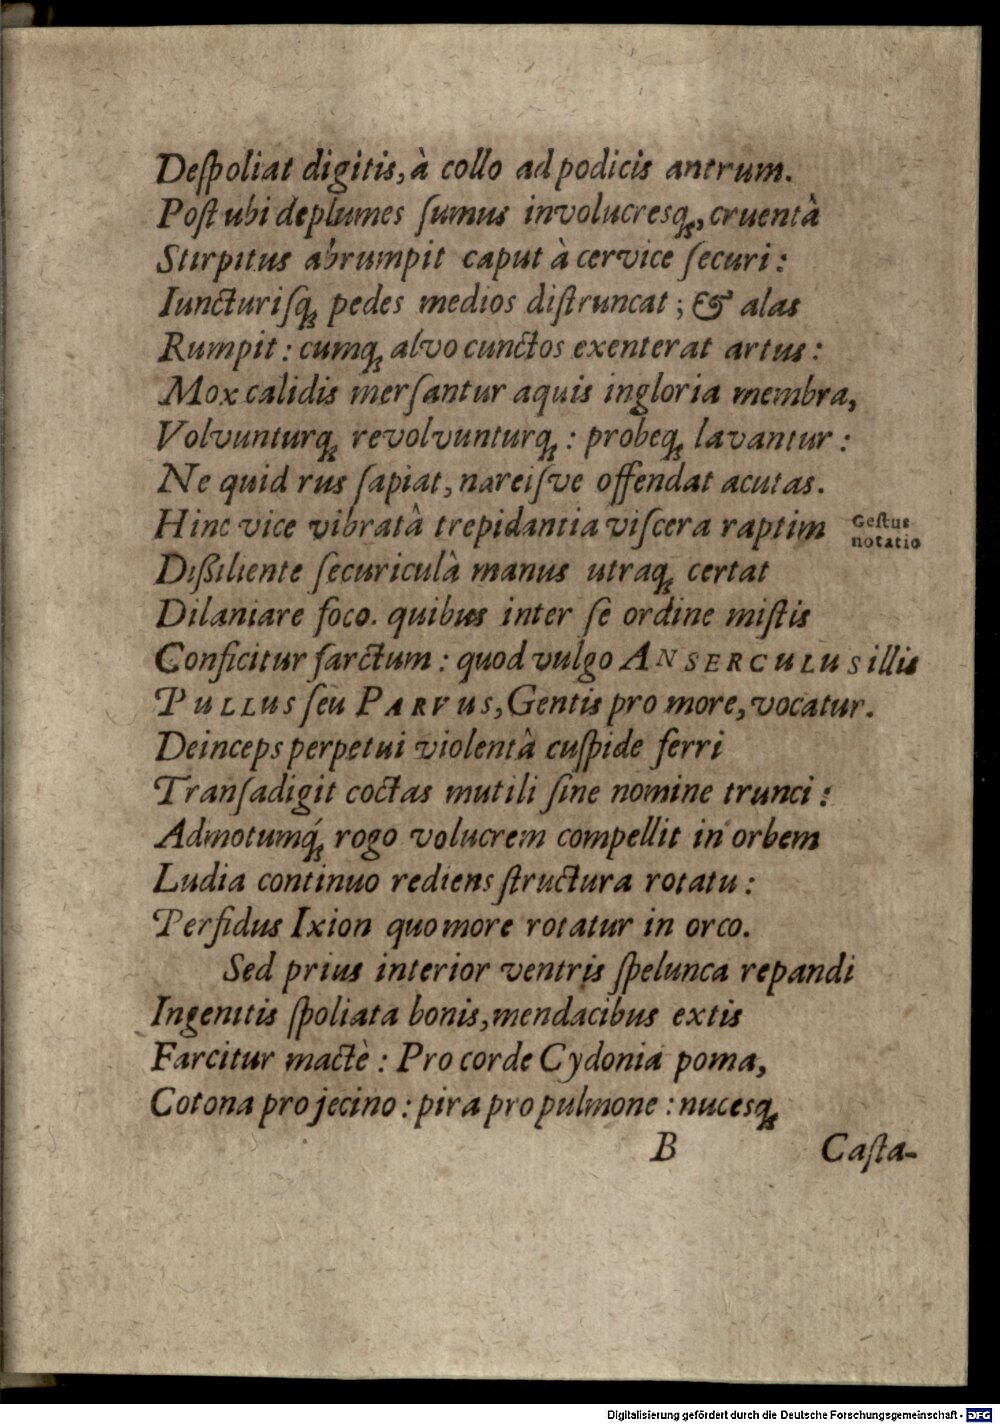 Deſpoliat digitis, à collo ad podicis antrum.
Poſt ubi deplumes ſumus involucresq́;, cruentà
Stirpitus abrumpit caput à cervice ſecuri:
Iuncturiſq; pedes medios diſtruncat; & alas
Rumpit: cumq; alvo cunctos exenterat artus:
Mox calidis merſantur aquis ingloria membra,
Volvunturq; revolvunturq;: probeq; lavantur:
Ne quid rus ſapiat, nareiſve offendat acutas.
Hinc vice vibratà trepidantia viſcera raptim
Geſtus
notatio
Diſſiliente ſecuriculà manus utraq; certat
Dilaniare foco. quibus inter ſe ordine miſtis
Conficitur farctum: quod vulgo ANSERCULUS illis
PULLUS ſeu PARVUS, Gentis pro more, vocatur.
Deinceps perpetui violentà cuſpide ferri
Tranſadigit coctas mutili ſine nomine trunci:
Admotumq́; rogo volucrem compellit in orbem
Ludia continuo rediens ſtructura rotatu:
Perfidus Ixion quo more rotatur in orco.
Sed prius interior ventris ſpelunca repandi
Ingenitis ſpoliata bonis, mendacibus extis
Farcitur mactè: Pro corde Cydonia poma,
Cotona pro jecino: pira pro pulmone: nucesq;
B Caſta-
Digitalisierung gefördert durch die Deutsche Forschungsgemeinschaft - DFG